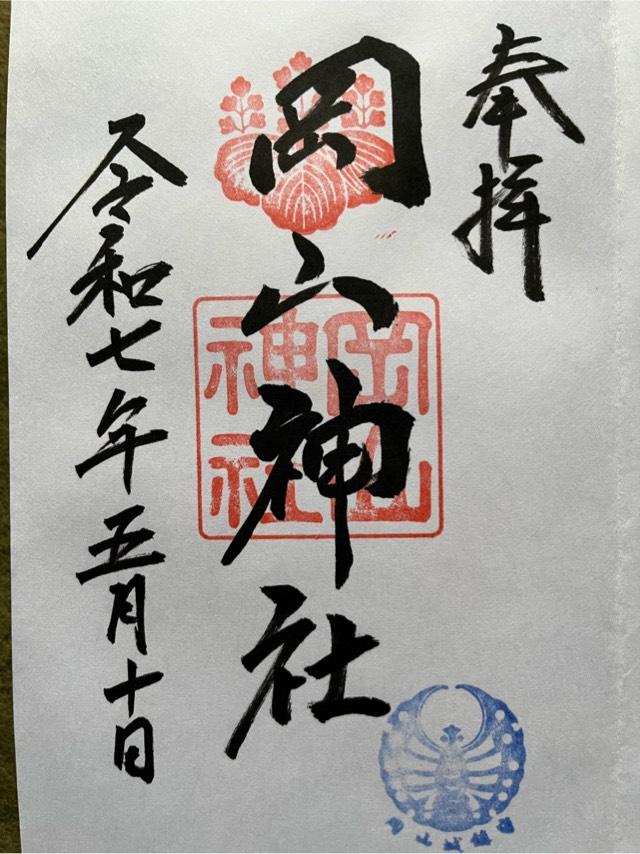 奉拝
岡山神社
令和七年五月十日
岡山
神社